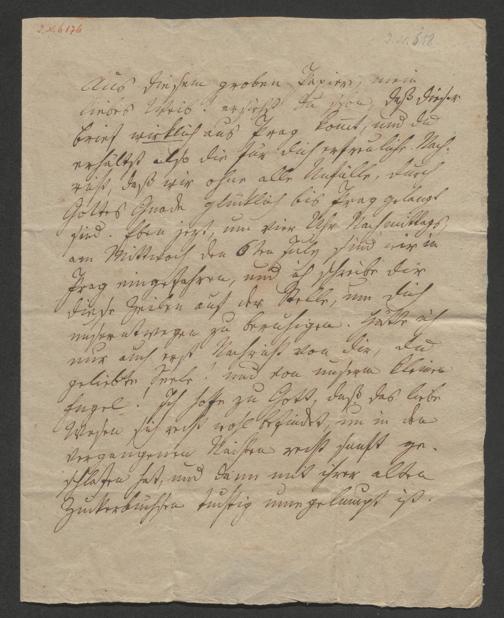 I.N. 6176
Aus diesem groben Papier, mein
liebes Weib! ersiehst Du schon, daß dieser
Brief wirklich aus Prag kommt, und Du
erhältst also die für Dich erfreuliche Nach-
richt, daß wir ohne alle Unfälle, durch
Gottes Gnade glücklich bis Prag gelangt
sind. Eben jezt, um vier Uhr Nachmittags
am Mittwoch den 6ten July, sind wir in
Prag eingefahren, und ich schreibe Dir
diese Zeilen auf der Stelle, um Dich
unsertwegen zu beruhigen. Hätte ich
nur auch erst Nachricht von Dir, Du
geliebte Seele! und von unserm kleinen
Engel! Ich hoffe zu Gott, daß das liebe
Wesen sich recht wohl befindet, in den
vergangenen Nächten recht sanft ge-
schlafen hat, und dann mit ihrer alten
tüchtig ist.